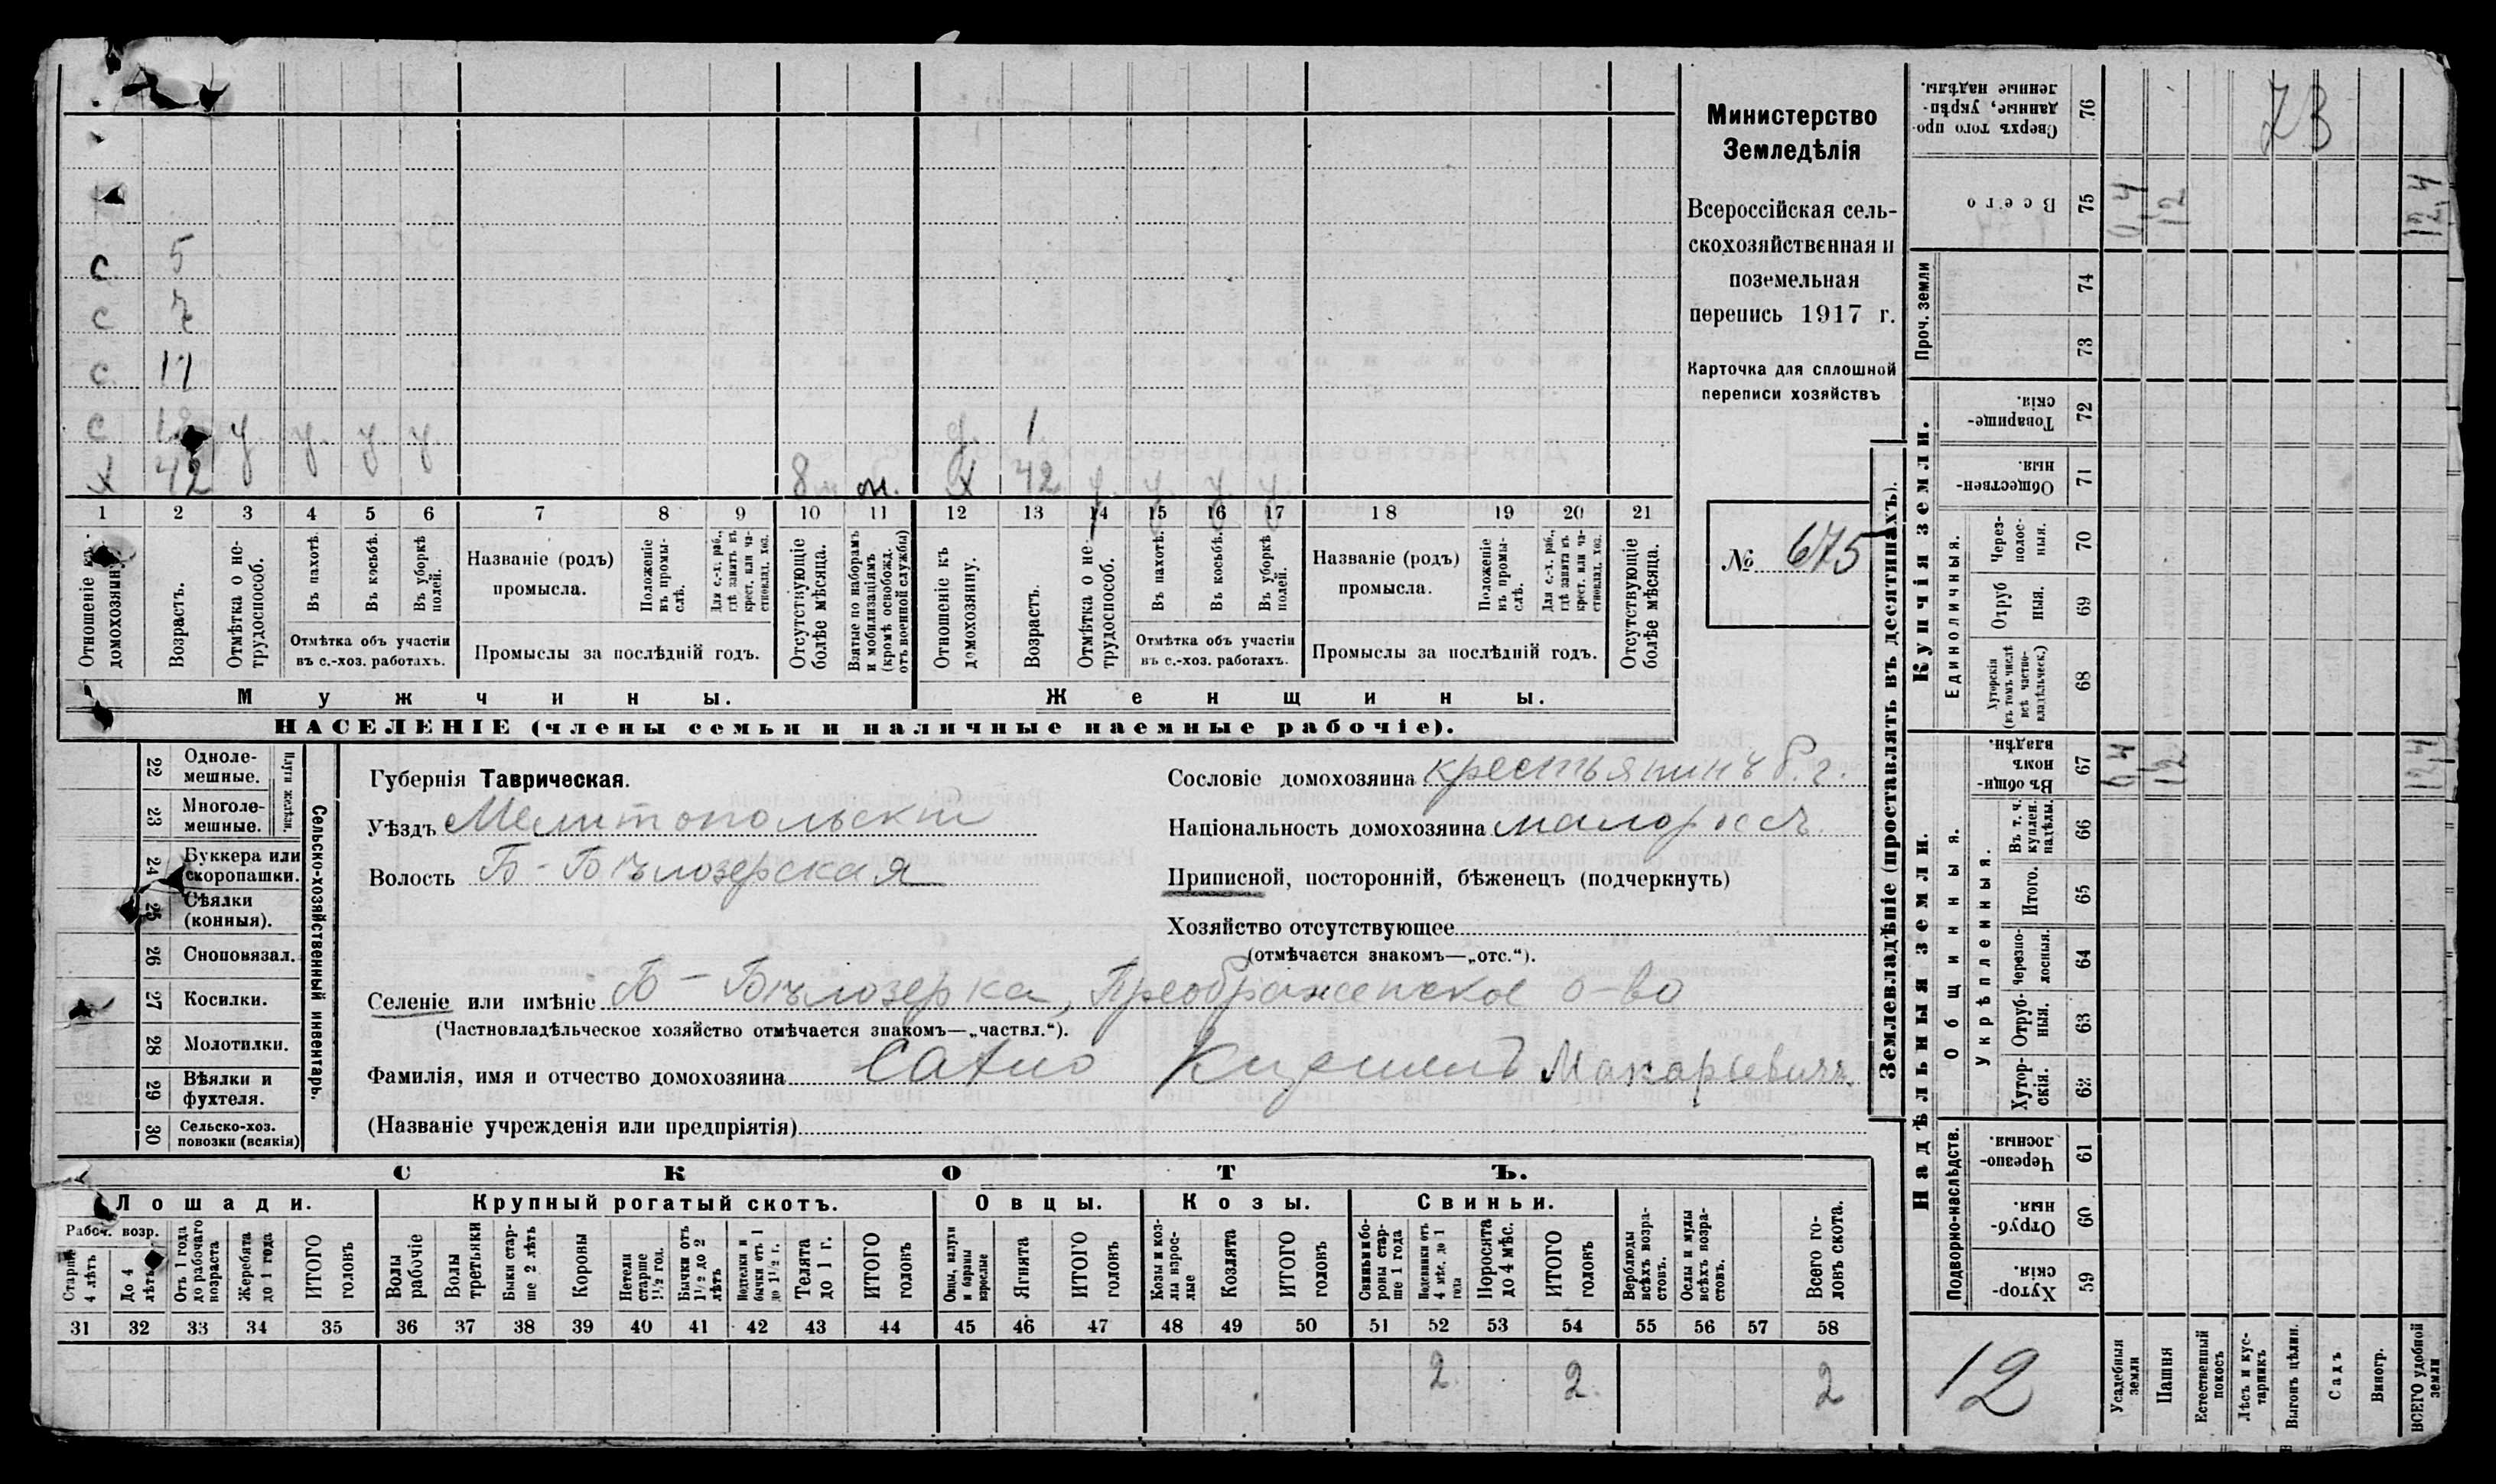 Министерство
Земледѣлія
Всероссійская сель-
скохозяйственная и
поземельная
перепись 1917 г.
Карточка для сплошной
переписи хозяйствъ
№ 675
с 5
с 7
с 11
с у. у. у. у. д. 1.
х 42 8 м. м. х 42 у. у. у. у.
1 2 3 4 5 6 7 8 9 10 11 12 13 14 15 16 17 18 19 20 21
Отношеніе къ домохозяину.
Возрастъ.
Отмѣтка о не-трудоспособ.
Въ пахотѣ.
Въ косьбѣ.
Въ уборкѣ полей.
Отмѣтка объ участіи въ с.-хоз. работахъ.
Названіе (родъ) промысла.
Положеніе въ промы-слѣ.
Для с.-х. раб., гдѣ занятъ въ крест. или ча-стновлад. хоз.
Промыслы за послѣдній годъ.
Отсутствующіе болѣе мѣсяца.
Взятые по наборамъ и мобилизаціямъ (кромѣ освобожд. отъ военной службы)
Отношеніе къ домохозяину.
Возрастъ.
Отмѣтка о не-трудоспособ.
Въ пахотѣ.
Въ косьбѣ.
Въ уборкѣ полей.
Отмѣтка объ участіи въ с.-хоз. работахъ.
Названіе (родъ) промысла.
Положеніе въ промы-слѣ.
Для с.-х. раб., гдѣ занята въ крест. или ча-стновлад. хоз.
Промыслы за послѣдній годъ.
Отсутствующіе болѣе мѣсяца.
Мужчины.
Женщины.
НАСЕЛЕНІЕ (члены семьи и наличные наемные рабочіе).
22 Одноле-мешные.
23 Многоле-мешные.
Плуги желѣзн.
24 Буккера или скоропашки.
25 Сѣялки (конныя).
26 Сноповязал.
27 Косилки.
28 Молотилки.
29 Вѣялки и фухтеля.
30 Сельско-хоз. повозки (всякія)
Сельско-хозяйственный инвентарь.
Губернія Таврическая.
Уѣздъ Мелитопольскій
Волость Б-Бѣлозерская
Сословіе домохозяина крестьянинъ б. г.
Національность домохозяина малороссъ.
Приписной, посторонній, бѣженецъ (подчеркнуть)
Хозяйство отсутствующее
(отмѣчается знакомъ—„отс.“).
Селеніе или имѣніе Б-Бѣлозерка, Преображенское о-во
(Частновладѣльческое хозяйство отмѣчается знакомъ—„частвл.“).
Фамилія, имя и отчество домохозяина Сахно Кириллъ Макарьевичъ
(Названіе учрежденія или предпріятія)
СКОТЪ.
Лошади.
Крупный рогатый скотъ.
Овцы.
Козы.
Свиньи.
Рабоч. возр.
Старше 4 лѣтъ
До 4 лѣтъ
Отъ 1 года до рабочаго возраста
Жеребята до 1 года
ИТОГО головъ
Волы рабочіе
Волы третьяки
Быки стар-ше 2 лѣтъ
Коровы
Нетели старше 1½ год.
Бычки отъ 1½ до 2 лѣтъ
Подтелки и бычки отъ 1 до 1½ г.
Телята до 1 г.
ИТОГО головъ
Овцы, валухи и бараны взрослые
Ягнята
ИТОГО головъ
Козы и коз-лы взрос-лые
Козлята
ИТОГО головъ
Свиньи и бо-ровы стар-ше 1 года
Подсвинки отъ 4 мѣс. до 1 года
Поросята до 4 мѣс.
ИТОГО головъ
Верблюды всѣхъ возра-стовъ.
Ослы и мулы всѣхъ возра-стовъ.
Всего го-ловъ скота.
31 32 33 34 35 36 37 38 39 40 41 42 43 44 45 46 47 48 49 50 51 52 53 54 55 56 57 58
2 2 2
Землевладѣніе (проставлять въ десятинахъ).
Купчія земли.
Надѣльныя земли.
76 Сверхъ того про-данные, укрѣп-ленные надѣлы.
75 Всего 0,4 12 12,4
Проч. земли
74
73
72 Товарище-скія.
71 Обществен-ныя.
Единоличныя.
70 Через-полос-ныя.
69 Отруб ныя.
68 Хуторскія (въ томъ числѣ всѣ частно-владѣльческ.)
67 Въ общи-номъ владѣн. 0,4 12 12,4
Общинныя.
Укрѣпленныя.
66 Въ т. ч. куплен. надѣлы.
65 Итого.
64 Черезпо-лосныя.
63 Отруб-ныя.
62 Хутор-скія.
Подворно-наслѣдств.
61 Черезпо-лосныя.
60 Отруб-ныя.
59 Хутор-скія.
12
Усадебныя земли
Пашня
Естественный покосъ
Лѣсъ и кус-тарникъ
Выгонъ цѣлин.
Садъ
Виногр.
ВСЕГО удобной земли